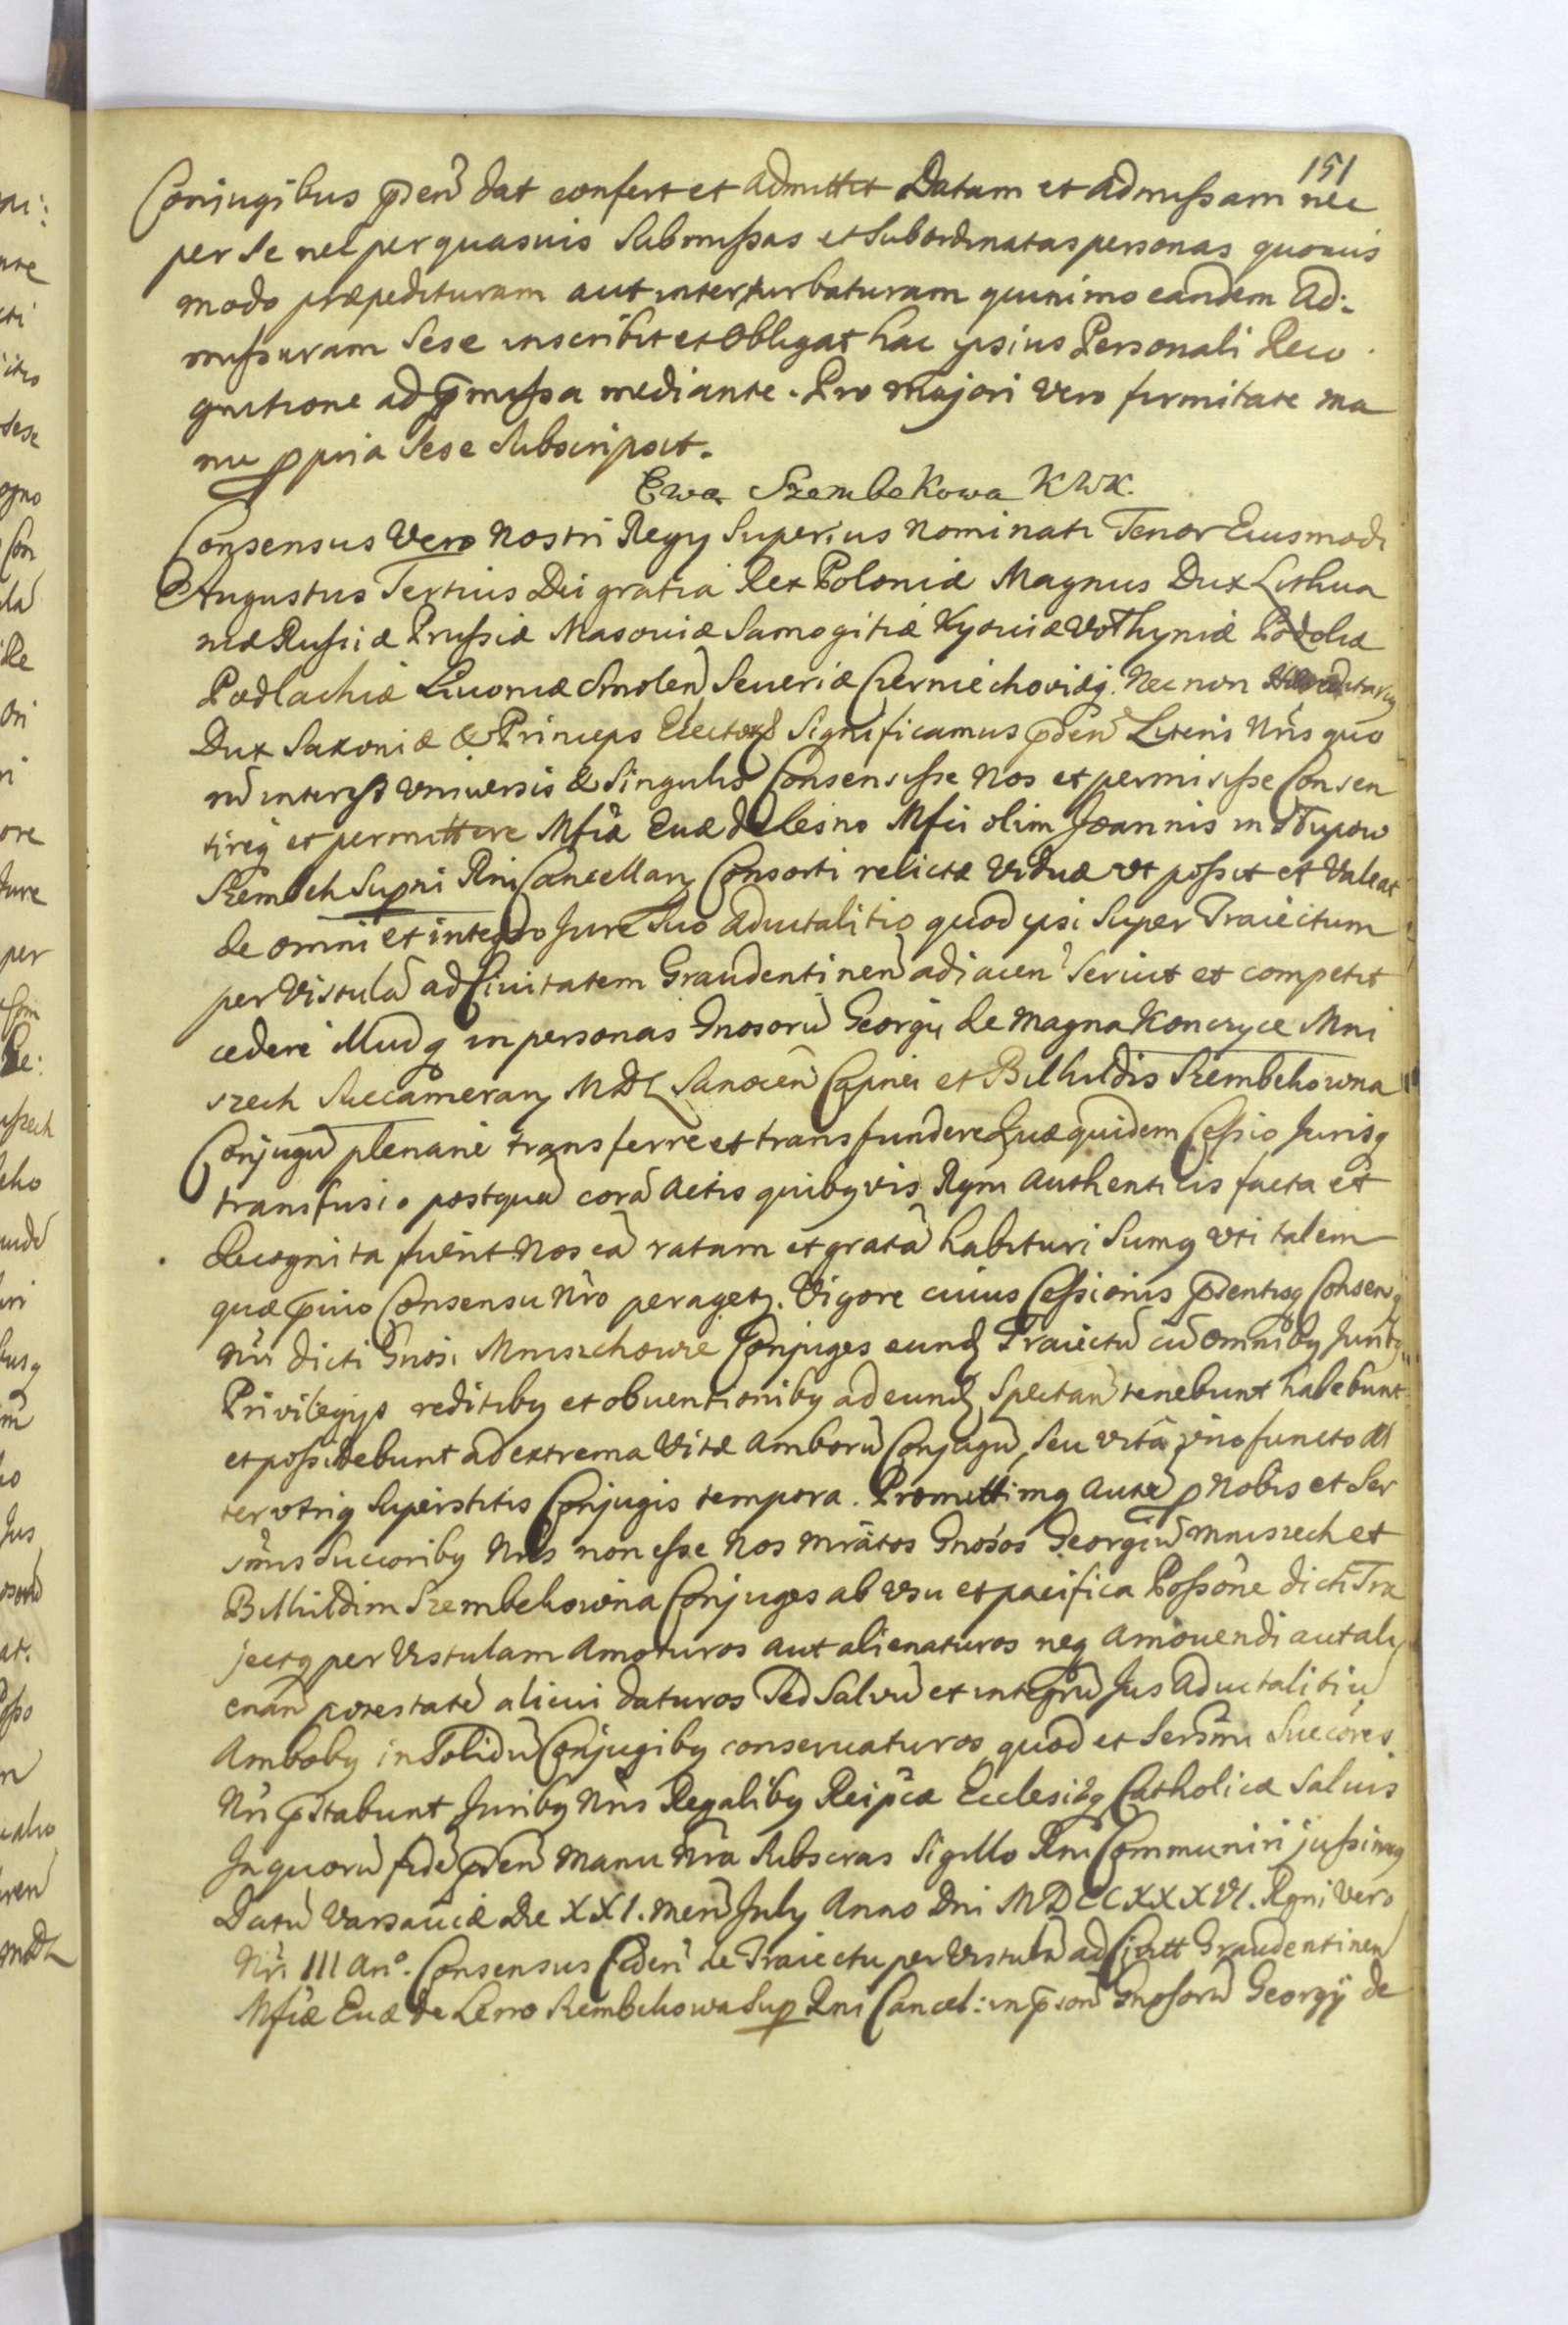 151
Conjugibus p̅sen̅ dat confert et admittit Datam et admissam nec
per Se vel per quasvis Submissas et Subordinatas personas quovis
modo præpedituram aut interturbaturam quinimo eandem Ad:
missuram Sese inscribit et Obligat hac ipsius Personali Reco
gnitione ad p̅missa mediante. Pro majori vero firmitate ma
nu ppria Sese Subscripsit.
Ewa Szembekowa KWK.
Consensus Vero Nostri Regij Superius Nominati Tenor Eiusmodi
Augustus Tertius Dei gratia Rex Poloniæ Magnus Dux Lithua
niæ Russiæ Prussiæ Masoviæ Samogitiæ Kyoviæ Volhyniæ Podoliæ
Podlachiæ Livoniæ Smolen̅ Severiæ Czerniechoviæq. Nec non Hæreditarius
Dux Saxoniæ & Princeps Elector Significamus p̅sen̅ Literis Nr̅is quo
ru̅ interest Universis & Singulis Consensisse Nos et permisisse Consen
tireq et permittere Mfcæ Evæ de Lesno Mfci olim Joannis in Słupow
Szembek Supmi Rni Cancellarij Consorti relictæ Viduæ ut possit et Valeat
de omni et integro Jure Suo advitalitio quod ipsi Super Traiectum
per Vistula̅ ad Civitatem Graudentinen̅ adiacen̅ Servit et competit
cedere illudq in personas Gnosoru̅ Georgij de Magna Konczyce Mni
szech Succamerarij MDL Sanocen̅ Capnei et Bilhildis Szembekowna
Conjugu̅ plenarie transferre et transfundere Quæ quidem Cessio Jurisq
transfusio postqua̅ cora̅ Actis quibusvis Rgni Authenticis facta et
Recognita fuerit Nos ea̅ ratam et grata̅ habituri Sumq uti talem
quæ p̅vio Consensu Nr̅o peragetr. Vigore cuius Cessionis p̅sentisq Consensq
Nr̅i dicti Gnosi Mniszchowie Conjuges eund̅ Traiectu̅ cu̅ omnibq Juribq
Privilegijs reditibq et obventionibq ad eund̅ Spectan̅ tenebunt habebunt
et possidebunt ad extrema Vitæ Amboru̅ Conjugu̅ Seu vita̅ uno functo al
terutriq Superstitis Conjugis tempora. Promittimq aute̅ p Nobis et Ser
smis Succoribq Nr̅is non esse Nos mratos Gnosos Georgiu̅ Mniszech et
Bilhildim Szembekowna Conjuges ab usu et pacifica Possone dicti Tra
jectq per Vistulam Amoturos aut alienaturos neq amovendi aut ali
enan̅ potestate̅ alicui daturos Sed Salvu̅ et integru̅ Jus Advitalitiu̅
Ambobq in Solidu̅ Conjugibq conservaturos quod et Sersmi Succores
Nr̅i p̅stabunt Juribq Nr̅is Regalibq Reipcæ Ecclesiæq Catholicæ Salvis
In quoru̅ fide̅ p̅sen̅ Manu Nr̅a Subscras Sigillo Rni Communiri jussimq
Datu̅ Varsaviæ Die XXI. men̅ July Anno Dni MDCCXXXVI. Rgni Vero
Nr̅i III An̅o. Consensus Ceden̅ de Traiectu per Vistula̅ ad Civitt Graudentinen̅
Mfcæ Evæ de Lesno Szembekowa Sup Rni Cancel: in p̅son̅ Gnosoru̅ Georgÿ de